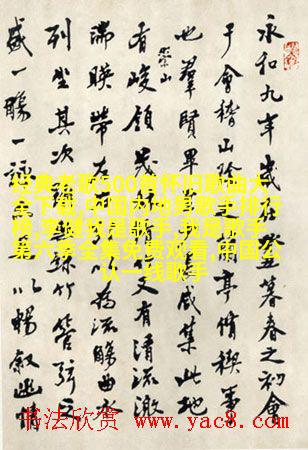 永和九年歲在癸丑暮春之初會
于會稽山陰亭脩禊事
也羣賢畢咸集此地
有崇山峻領茂又有清流激
湍暎帶左為流觴曲水
列坐其次竹管弦之
盛一觴一詠以暢敘幽情
经典老歌500首怀旧歌曲大
全下载,中国内地男歌手排行
榜,李健我是歌手,我是歌手
第六季全集免费观看,中国公
认一线歌手
书法欣赏 www.yac8.com